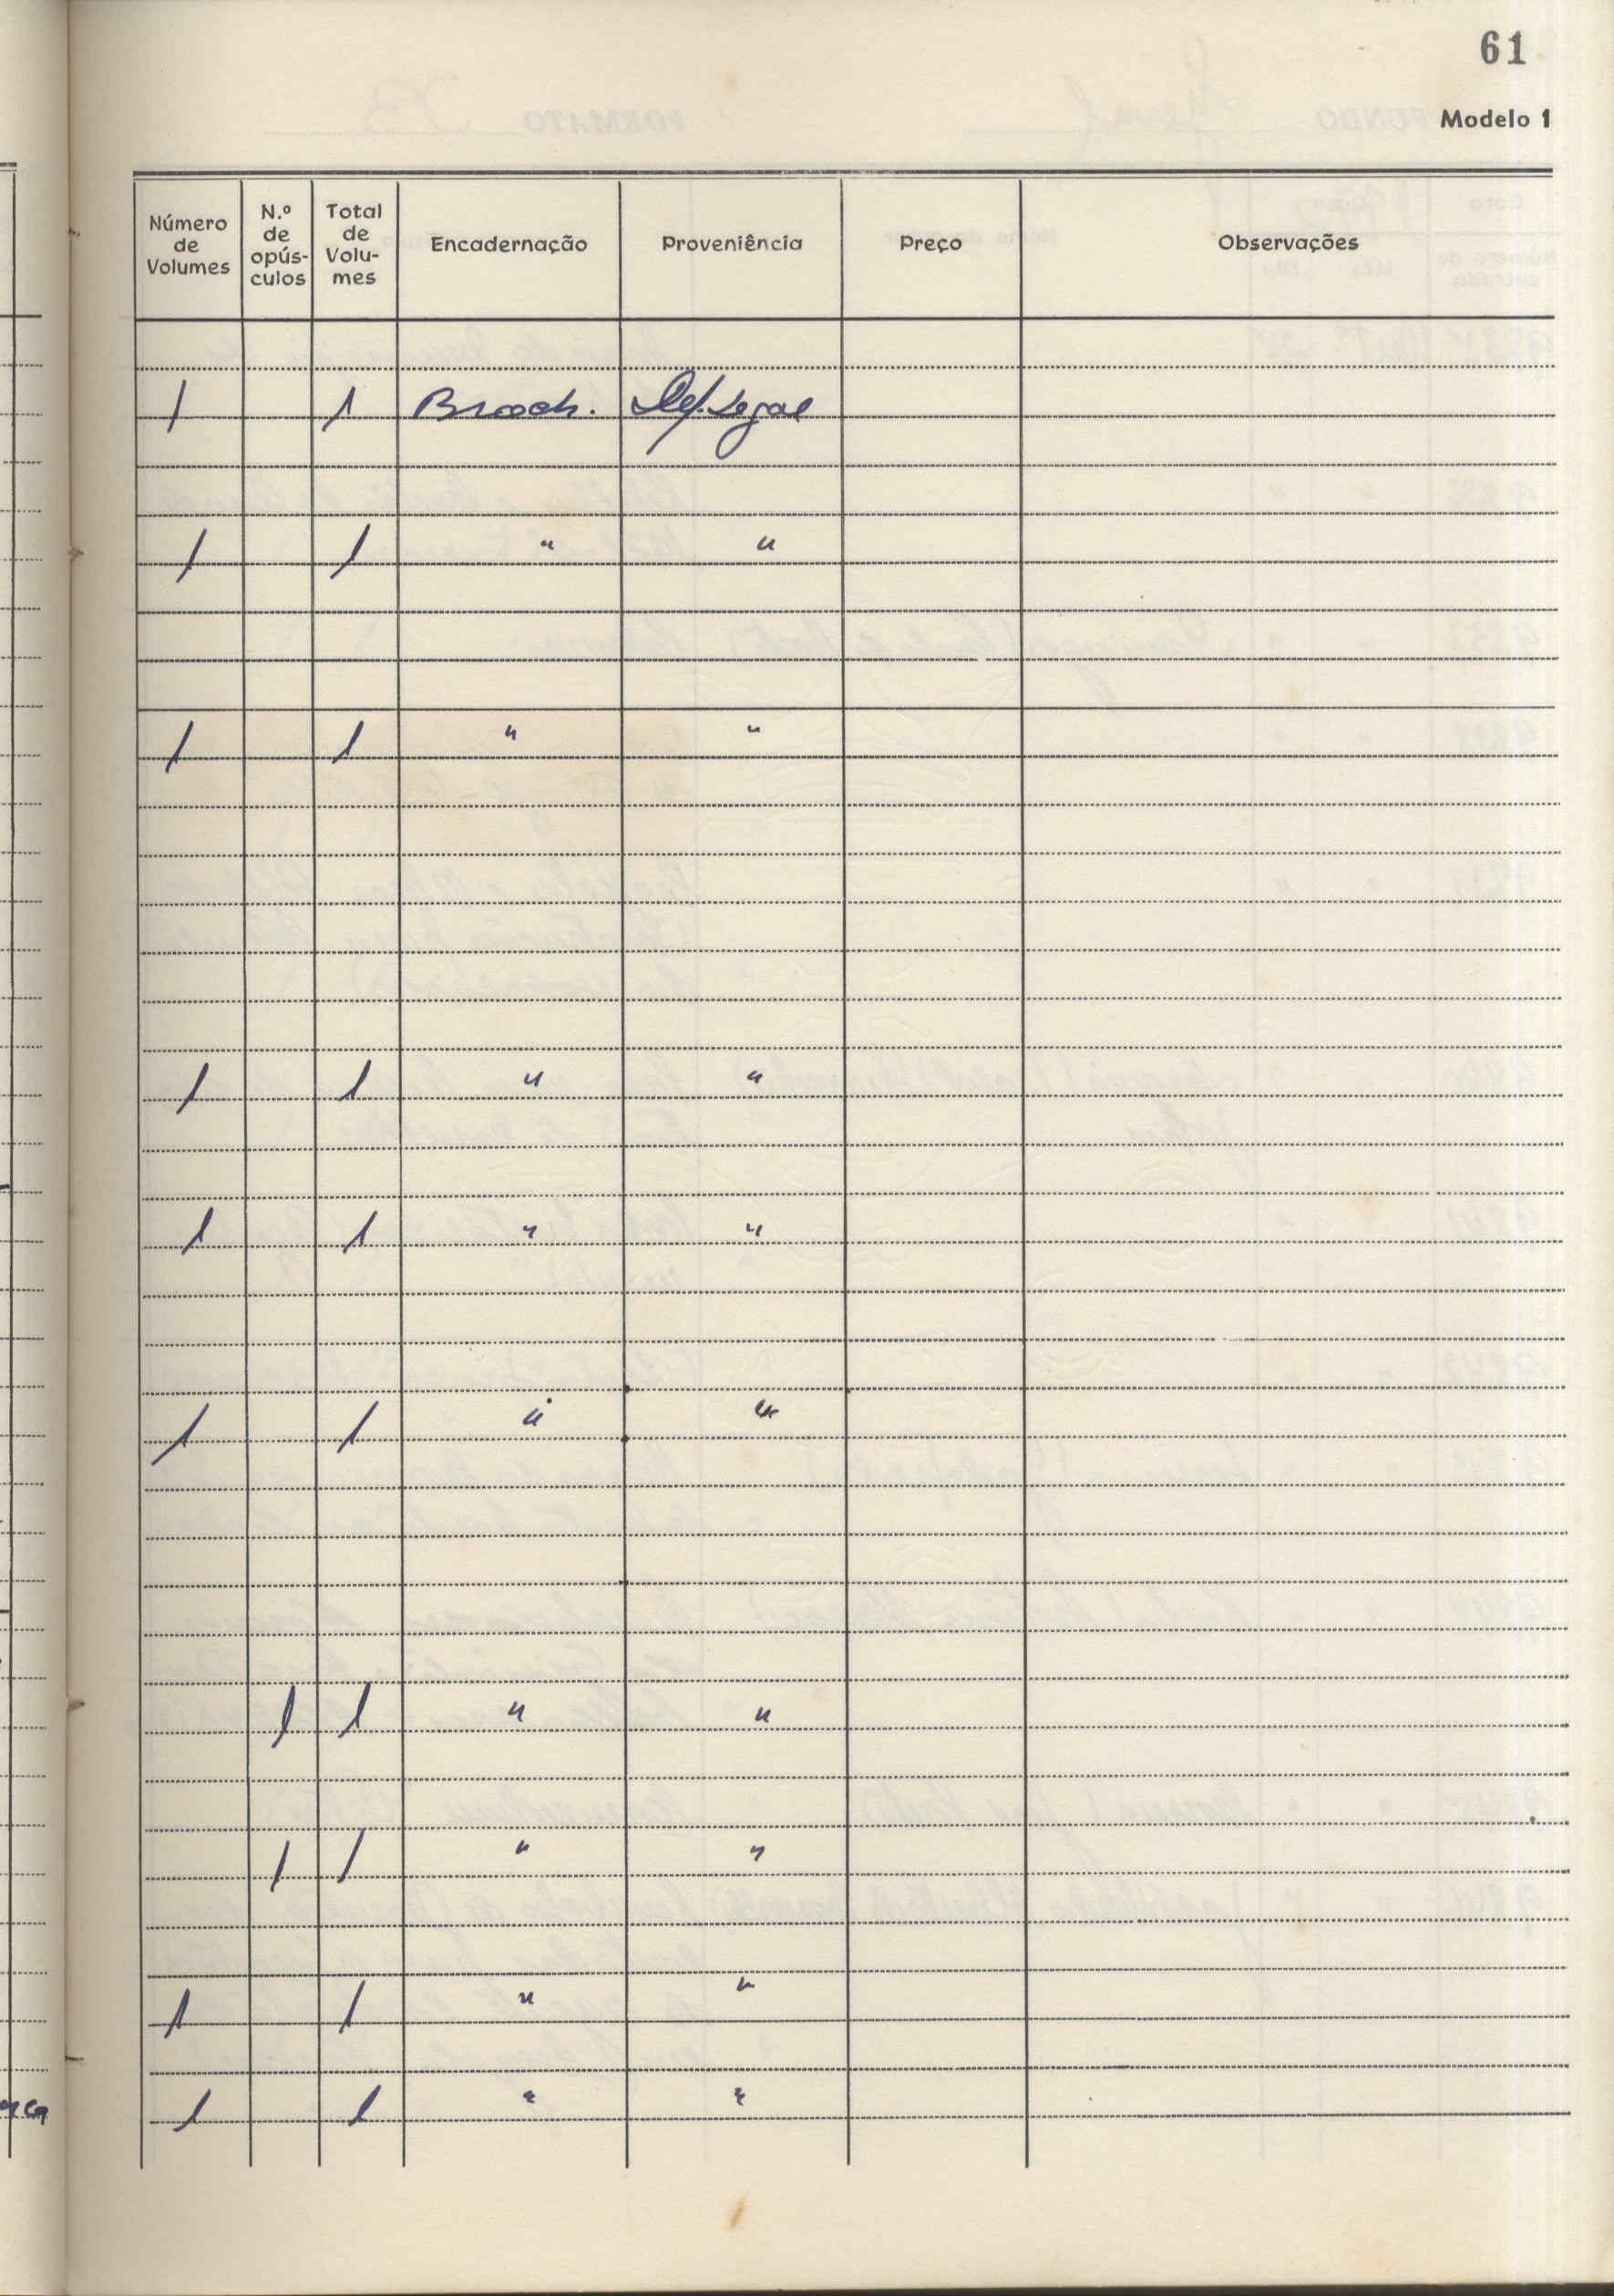 61
Modelo 1
Número de Volumes | N.º de opús-culos | Total de Volu-mes | Encadernação | Proveniência | Preço | Observações
1 | | 1 | Broch. | Dep. Legal
1 | | 1 | " | "
1 | | 1 | " | "
1 | | 1 | " | "
1 | | 1 | " | "
1 | | 1 | " | "
| 1 | 1 | " | "
| 1 | 1 | " | "
1 | | 1 | " | "
1 | | 1 | " | "